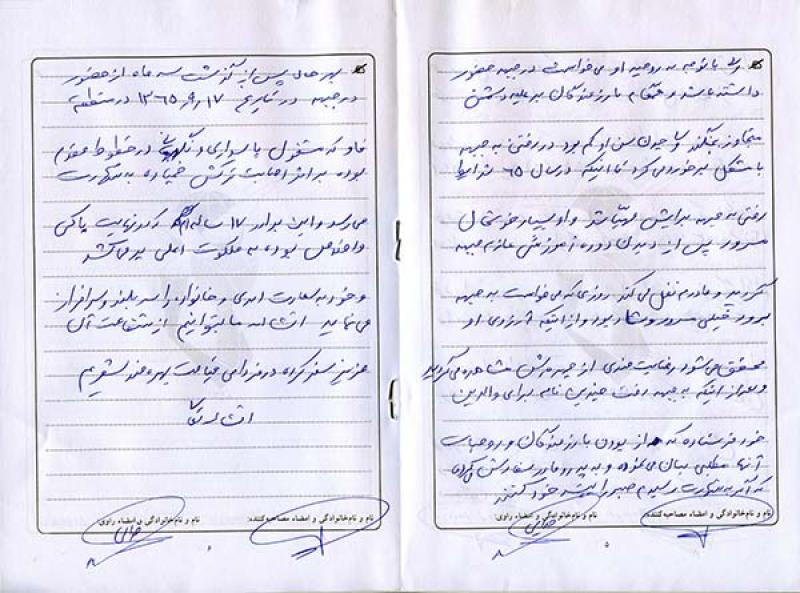 با توجه به روحیه او می‌خواست در جبهه حضور
داشته باشد و هنگام با رزمندگان بر علیه دشمن
متجاوز بجنگند و چون سن او کم بود در رفتن به جبهه
با مشکل برخورد می کرد تا اینکه در سال ۶۵ شرایط
رفتن به جبهه برایش مهیّا شد و او بسیار خوشحال
مسرور پس از دیدن دوره آموزشی عازم جبهه
گردید و مادرم نقل می کند روزی که می خواست به جبهه
برود خیلی مسرور و شاد بود و از اینکه آرزوی او
محقق می‌شود رضایت مندی از چهره‌اش مشاهده می گردید
و بعد از اینکه به جبهه رفت چندین نامه برای والدین
خود فرستاده که از بودن با رزمندگان و روحیات
آنها مطلبی بیان می نموده و به پدر و مادر سفارش می کرده
که اگر به شهادت رسیدم صبر را پیشه خود کنند
نام و نام خانوادگی و امضاء مصاحبه کننده:
نام و نام خانوادگی و امضاء راوی:
بهر حال پس از گذشت سه ماه از حضور
در جبهه در تاریخ ۱۷ر۹ر۱۳۶۵ در منطقه
فاو که مشغول پاسداری و نگهبانی در خطوط مقدم
بوده بر اثر اصابت ترکش خمپاره به شهادت
می رسد و این برادر ۱۷ ساله که در نهایت پاکی
و اخلاص بوده به ملکوت اعلی پر می کشد
و خود به سعادت ابدی و خانواده را سر بلند و سرافراز
می نماید انشاءاله ما بتوانیم از شفاعت آن
عزیز سفر کرده در فردای قیامت بهره مند شویم
انشاءاله
نام و نام خانوادگی و امضاء مصاحبه کننده:
نام و نام خانوادگی و امضاء راوی: